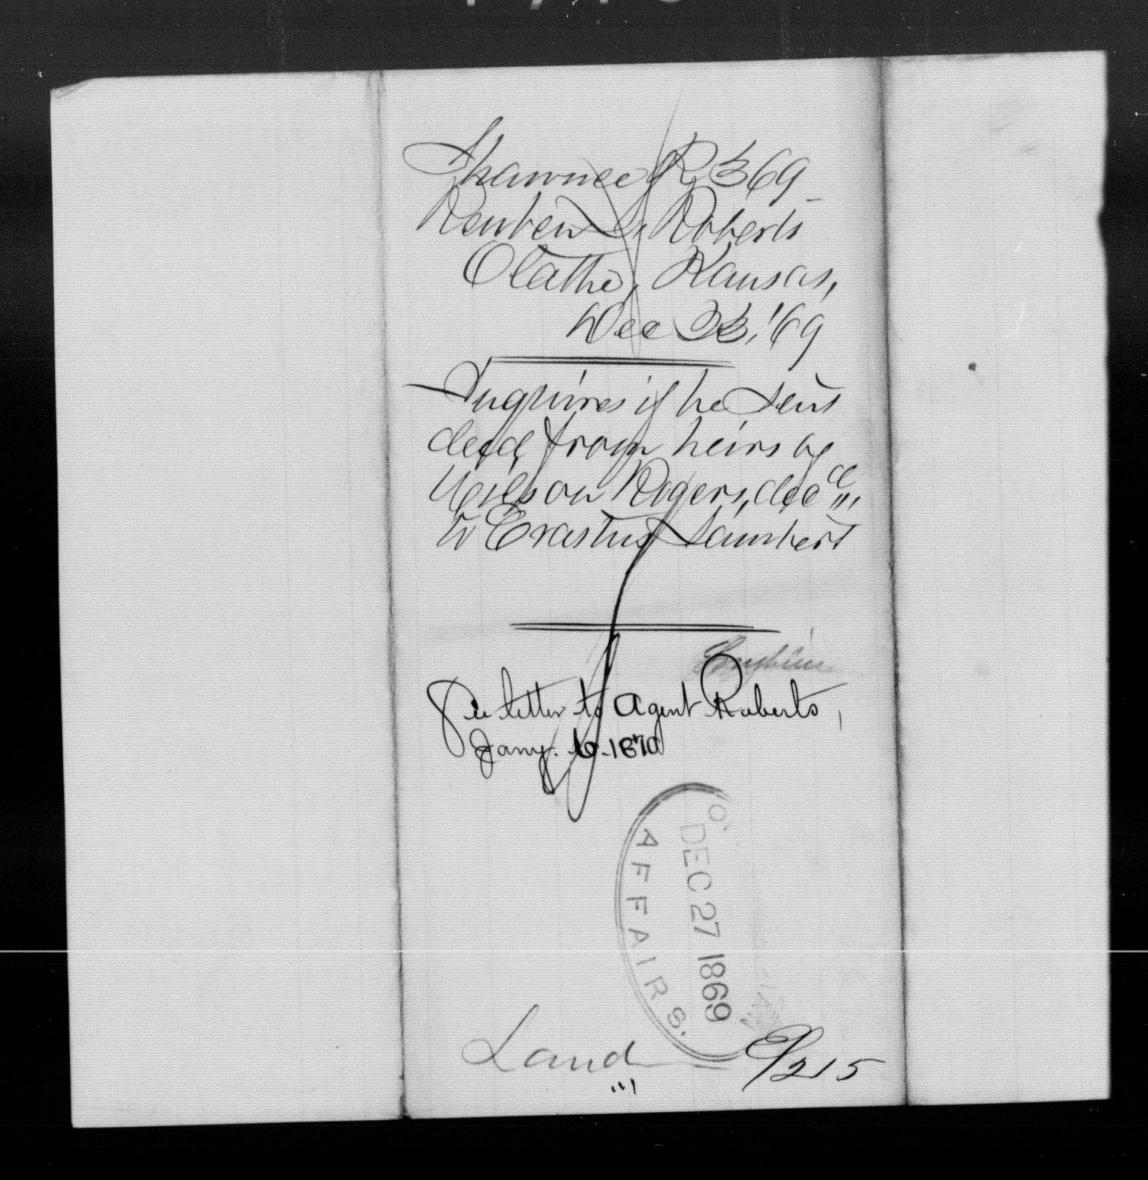 Shawnee R, 369
Reuben L. Roberts
Olathe, Kansas,
Dec 23, '69
Inquires if he sent
deed from heirs of
Wilson Rogers, dec'd
to Erastus Lambert
See letter to Agent Roberts,
Jany. 6. 1870
DEC 27 1869
AFFAIRS.
Land
215